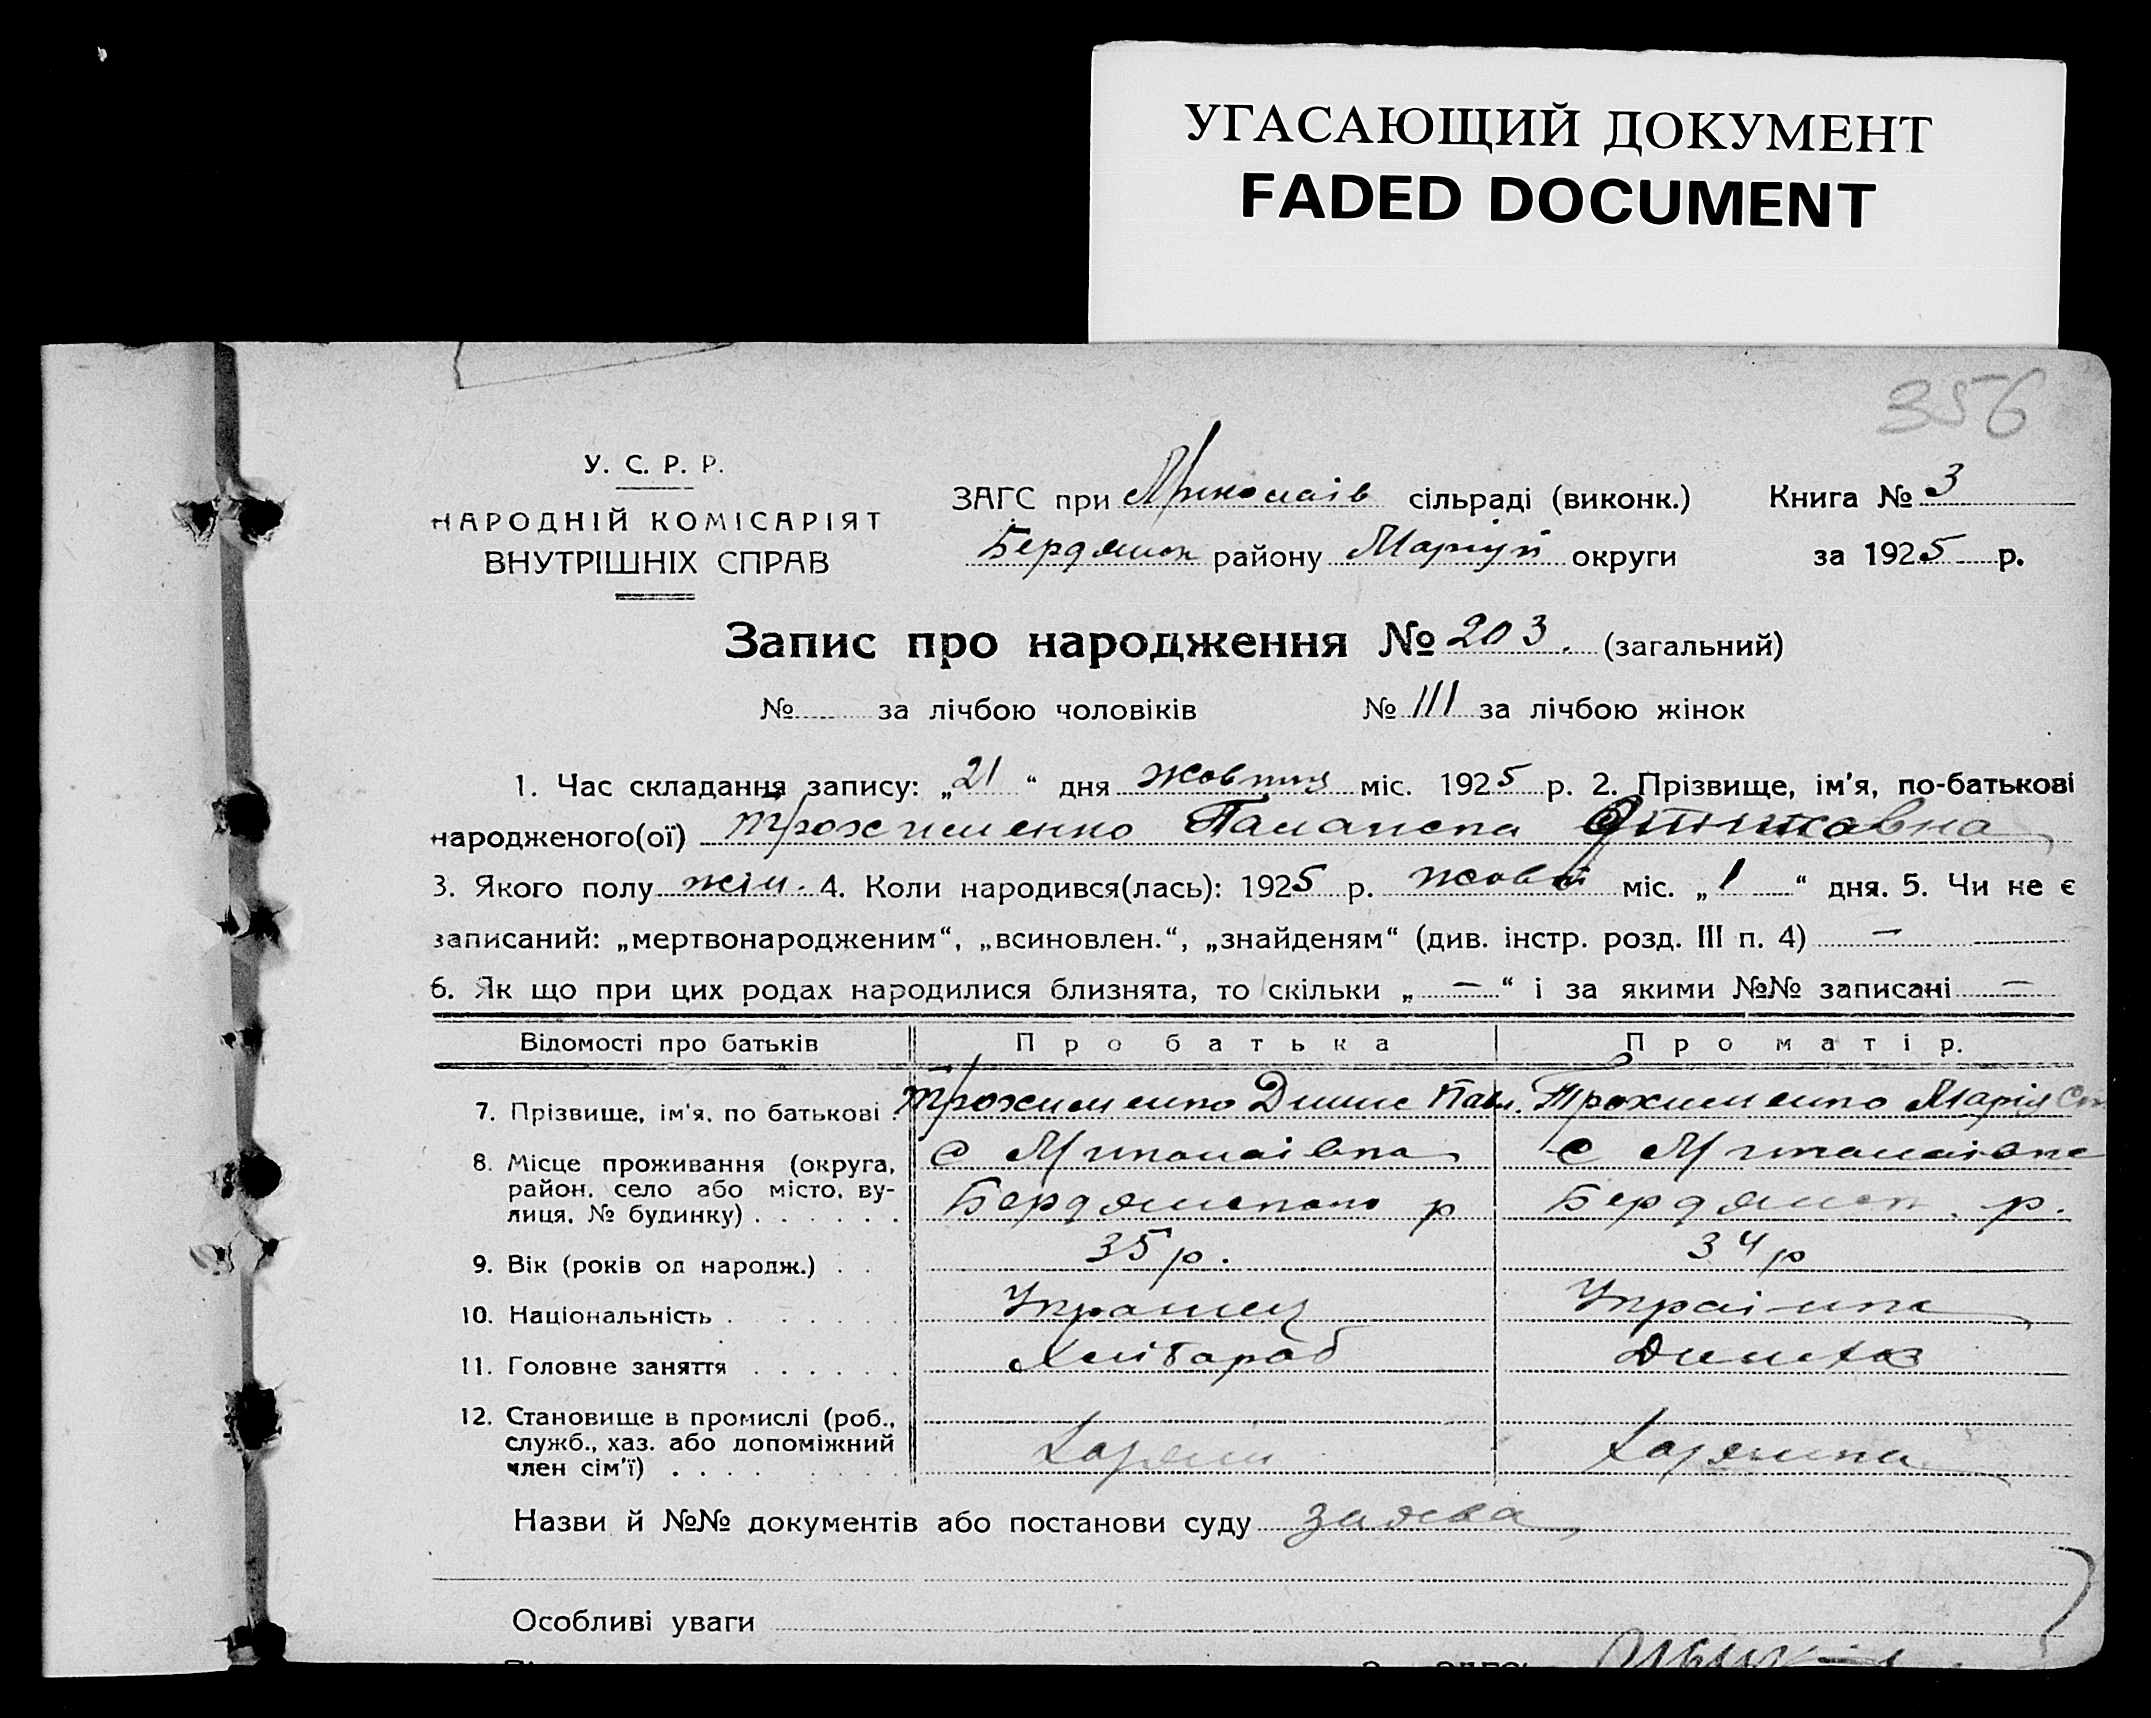 УГАСАЮЩИЙ ДОКУМЕНТ
FADED DOCUMENT
356
У. С. Р. Р.
НАРОДНІЙ КОМІСАРІЯТ
ВНУТРІШНІХ СПРАВ
ЗАГС при Миколаів сільраді (виконк.) Книга № 3
Бердянск району Маріуп округи за 1925 р.
Запис про народження № 203. (загальний)
№ за лічбою чоловіків № 111 за лічбою жінок
1. Час складання запису: „21“ дня жовтня міс. 1925 р. 2. Прізвище, ім'я, по-батькові
народженого(ої) Трохименко
3. Якого полу жін. 4. Коли народився(лась): 1925 р. жовт міс. „1“ дня. 5. Чи не є
записаний: „мертвонародженим“, „всиновлен.“, „знайденям“ (див. інстр. розд. III п. 4) —
6. Як що при цих родах народилися близнята, то скільки „—“ і за якими №№ записані —
Відомості про батьків Про батька Про матір.
7. Прізвище, ім'я, по батькові . Трохименко Динис Павл. Трохименко Марія Ст
8. Місце проживання (округа, район, село або місто, вулиця, № будинку) . . . . . .
с Миколаівка с Миколаівка
Бердянского р Бердянск. р.
9. Вік (років од народж.) . . 35 р. 34 р
10. Національність . . . . . . Украинец Украінка
11. Головне заняття . . . . . . Хлібороб Домхоз
12. Становище в промислі (роб., служб., хаз. або допоміжний член сім'ї) . . . .
Хазяин Хазяика
Назви й №№ документів або постанови суду заява
Особливі уваги